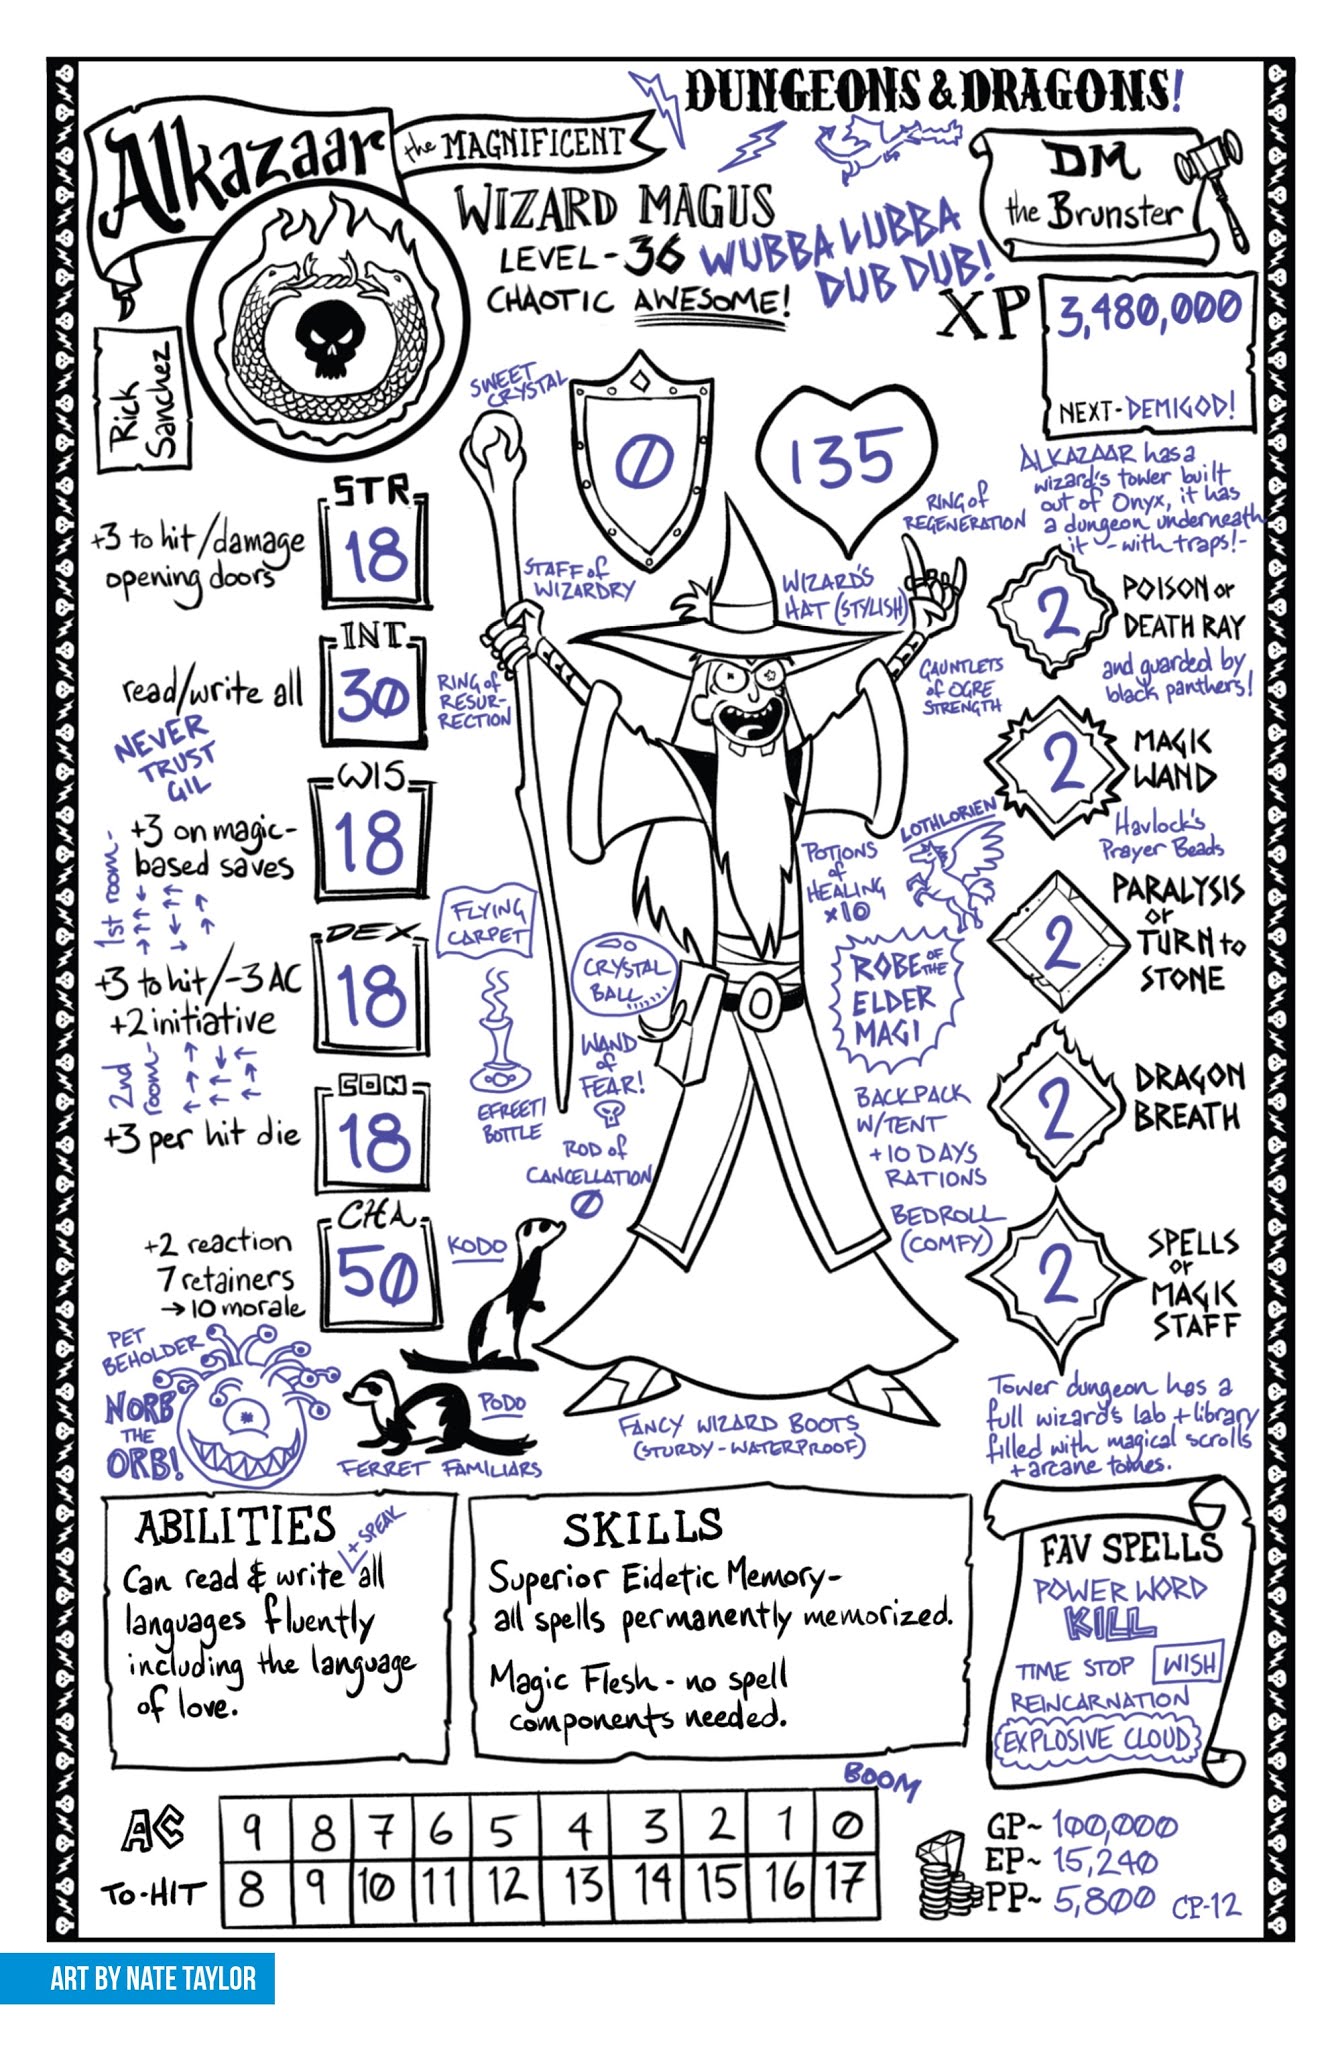 DUNGEONS & DRAGONS!
Alkazaar
the MAGNIFICENT
WIZARD MAGUS
LEVEL-36
CHAOTIC AWESOME!
WUBBA LUBBA
DUB DUB!
DM
the Brunster
XP
3,480,000
NEXT-DEMIGOD!
Rick
Sanchez
SWEET
CRYSTAL
0
135
ALKAZAAR has a
wizard's tower built
out of Onyx, it has
a dungeon underneath
it -with traps!-
RING of
REGENERATION
STR
18
+3 to hit/damage
opening doors
STAFF of
WIZARDRY
WIZARD'S
HAT (STYLISH)
2
POISON or
DEATH RAY
and guarded by
black panthers!
INT
30
read/write all
NEVER
TRUST
GIL
RING of
RESUR-
RECTION
GAUNTLETS
of OGRE
STRENGTH
2
MAGIC
WAND
Havlock's
Prayer Beads
WIS
18
+3 on magic-
based saves
1st room-
LOTHLORIEN
POTIONS
of
HEALING
x10
2
PARALYSIS
or
TURN to
STONE
DEX
18
+3 to hit/-3 AC
+2 initiative
2nd
room-
FLYING
CARPET
CRYSTAL
BALL
ROBE OF THE
ELDER
MAGI
EFREETI
BOTTLE
WAND
of
FEAR!
ROD of
CANCELLATION
BACKPACK
W/TENT
+10 DAYS
RATIONS
BEDROLL
(COMFY)
2
DRAGON
BREATH
CON
18
+3 per hit die
CHA
50
+2 reaction
7 retainers
→10 morale
KODO
2
SPELLS
or
MAGIC
STAFF
PET
BEHOLDER
NORB
THE
ORB!
PODO
FERRET FAMILIARS
FANCY WIZARD BOOTS
(STURDY-WATERPROOF)
Tower dungeon has a
full wizard's lab + library
filled with magical scrolls
+ arcane tomes.
ABILITIES
+ SPEAK
Can read & write all
languages fluently
including the language
of love.
SKILLS
Superior Eidetic Memory-
all spells permanently memorized.
Magic Flesh - no spell
components needed.
FAV SPELLS
POWER WORD
KILL
TIME STOP WISH
REINCARNATION
EXPLOSIVE CLOUD
BOOM
AC 9 8 7 6 5 4 3 2 1 0
TO-HIT 8 9 10 11 12 13 14 15 16 17
GP~ 100,000
EP~ 15,240
PP~ 5,800 CP-12
ART BY NATE TAYLOR